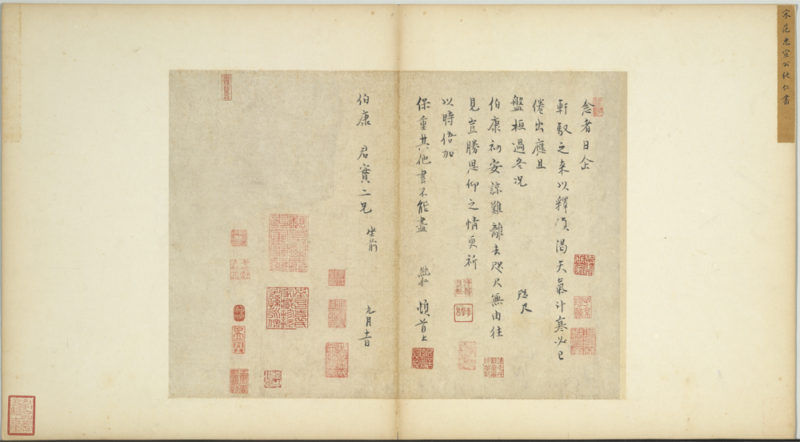 宋范忠宣公純仁書
念者日企
軒馭之來以釋傾渴天氣計寒必已
倦出應且
盤桓過冬況
咫尺
伯康初安諒難離去咫尺無由往
見豈勝思仰之情更祈
以時倍加
保重其他書不能盡 純仁頓首上
伯康 君實二兄 坐前
九月十一日